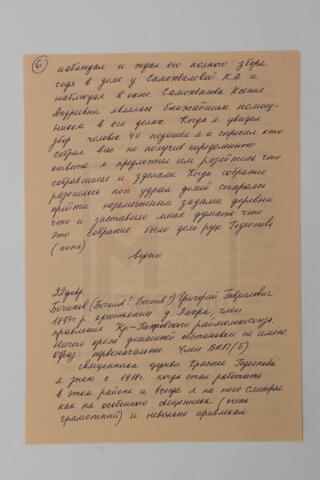 6
наблюдал и ждал его полного збора
сидя в доме у Самохваловой К.А. и
наблюдая в окно. Самохвалова Ксения
Андреевна являлась ближайшим помощ-
ником в его делах. Когда я увидел
збор человек 40 подошел я и спросил кто
собрал вас не получив определенного
ответа я предложил им разойтись что
собравшиеся и зделали. Когда собрание
разошлось поп удрал домой старался
пройти незамеченным задами деревни
что и заставило меня думать что
это собрание было дело рук Тодеонова
(попа)
22 февр.
Григорий Гаврилович
1897 г.р. крестьянин д. Пахра, член
правления Кр-Пахровского раймолокосоюза.
Ничего кроме домашней обстановки не имею.
Образ: первоначальное Член ВКП(б)
священника церкви Красное Тодеонова
я знаю с 1918 г. когда стал работать
в этом районе и всегда я на него смотрел
как на особенного священника (очень
грамотный) и невольно привлекал